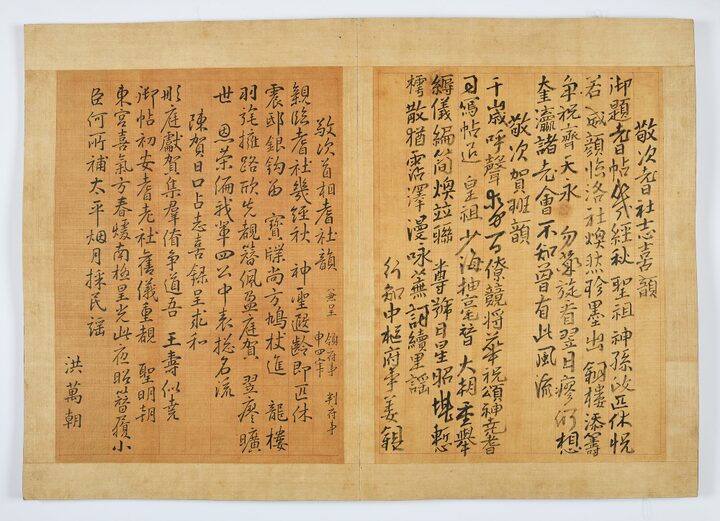 敬次耆社志喜韻
御題耆帖幾經秋 聖祖神孫政匹休悅
若承顔臨洛社煥然珍墨出銅樓添籌
争祝齊天永 勿藥旋看翌日瘳仍想
奎瀛諸老會不知曾有此風流
敬次賀班韻
千歲呼聲發百僚競將華祝頌神堯耆
司寫帖追 皇祖少海抽毫替 大朝重舉
縟儀編簡煥並聯 尊號日星昭堪慙
樗散猶霑澤漫咏蕪詞續里謠
行知中樞府事姜鋧
敬次首相耆社韻 兼呈 領府事 判府事
申四宰
親臨耆社幾經秋 神聖遐齡即匹休
震邸銀鈎面 寶牒尚方鳩杖進 龍樓
羽旄擁路欣先覩簪佩盈庭賀 翌瘳曠
世 恩榮偏我輩四公中表揔名流
陳賀日口占志喜錄呈求和
彤庭獻賀集羣僚争道吾 王壽似堯
御帖初安耆老社舊儀重覩 聖明朝
東宮喜氣方春煖南極星光此夜昭簪履小
臣何所補太平烟月採民謠
洪萬朝